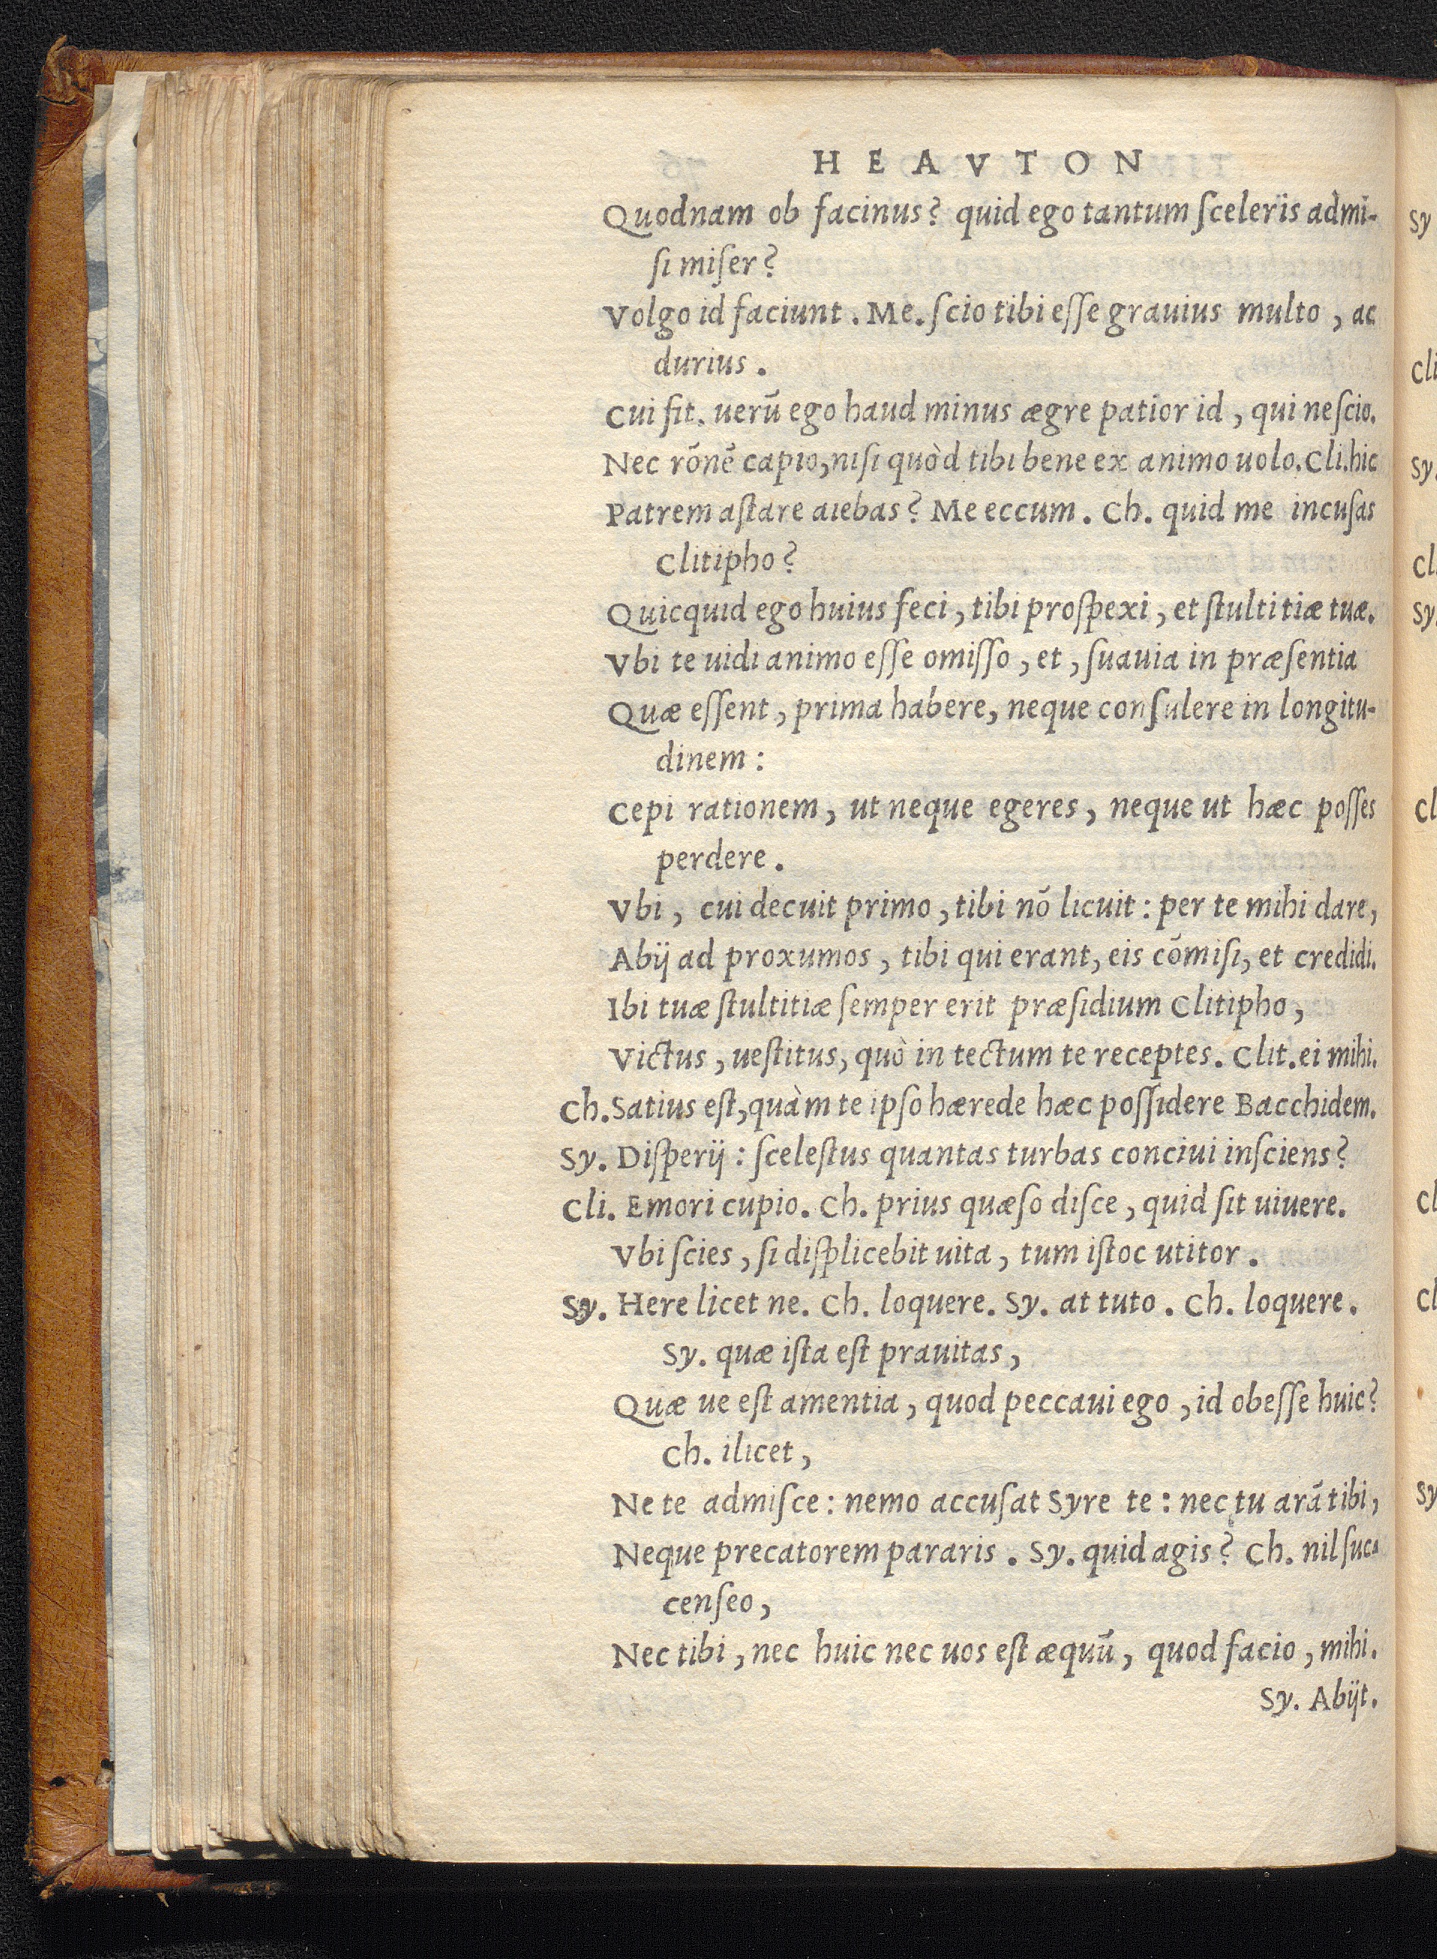 HEAVTON
Quodnam ob facinus? quid ego tantum ſceleris admi-
ſi miſer?
Volgo id faciunt. Me. ſcio tibi eſſe grauius multo, ac
durius.
Cui fit. uerū ego haud minus ægre patior id, qui neſcio.
Nec rōnē capio, niſi quòd tibi bene ex animo uolo. Cli. hic
Patrem aſtare aiebas? Me eccum. Ch. quid me incuſas
Clitipho?
Quicquid ego huius feci, tibi proſpexi, et ſtultitiæ tuæ.
Vbi te uidi animo eſſe omiſſo, et, ſuauia in præſentia
Quæ eſſent, prima habere, neque conſulere in longitu-
dinem:
Cepi rationem, ut neque egeres, neque ut hæc poſſes
perdere.
Vbi, cui decuit primo, tibi nō licuit: per te mihi dare,
Abij ad proxumos, tibi qui erant, eis cōmiſi, et credidi.
Ibi tuæ ſtultitiæ ſemper erit præſidium Clitipho,
Victus, ueſtitus, quò in tectum te receptes. Clit. ei mihi.
Ch. Satius eſt, quàm te ipſo hærede hæc poſſidere Bacchidem.
Sy. Diſperij: ſceleſtus quantas turbas conciui inſciens?
Cli. Emori cupio. Ch. prius quæſo diſce, quid ſit uiuere.
Vbi ſcies, ſi diſplicebit uita, tum iſtoc utitor.
Sy. Here licet ne. Ch. loquere. Sy. at tuto. Ch. loquere.
Sy. quæ iſta eſt prauitas,
Quæ ue eſt amentia, quod peccaui ego, id obeſſe huic?
Ch. ilicet,
Ne te admiſce: nemo accuſat Syre te: nec tu arā tibi,
Neque precatorem pararis. Sy. quid agis? Ch. nil ſuc-
cenſeo,
Nec tibi, nec huic nec uos eſt æquū, quod facio, mihi.
Sy. Abijt.
Sy
Cli
Sy.
Cl
Sy.
Cl
Cl
Cl
Sy